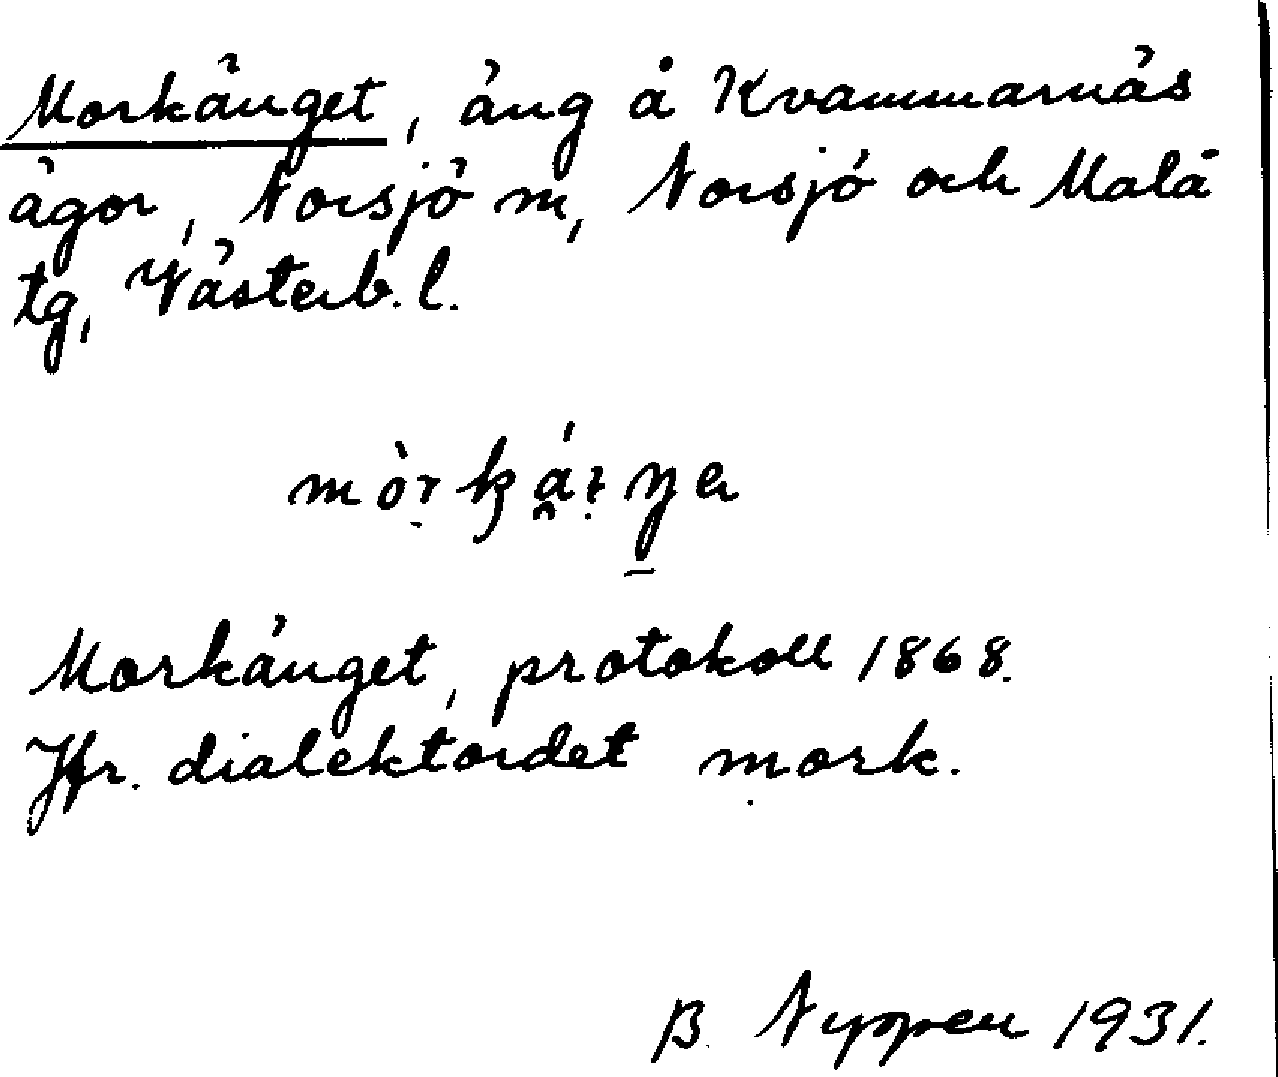 Morkänget, äng å Kvammarnäs
ägor, Norsjö sn, Norsjö och Malå
tg, Västerb. l.
Morkänget, protokoll 1868.
Jfr. dialektordet mork.
B. Nyppen 1931.